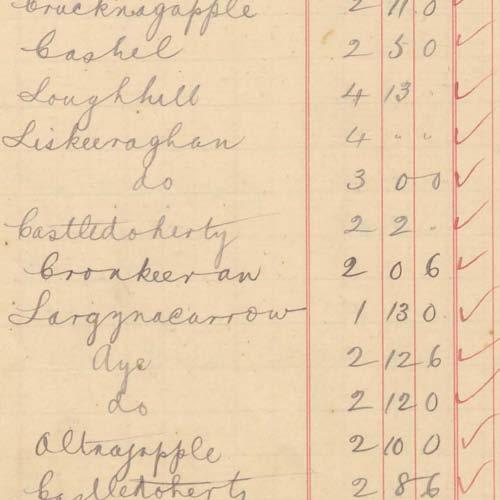 Crucknagapple 2 11 0
Cashel 2 5 0
Loughhill 4 13 "
Liskeeraghan 4 " "
do 3 0 0
Castledoherty 2 2 "
Cronkeeran 2 0 6
Largynacarrow 1 13 0
Aye 2 12 6
do 2 12 0
Altnagapple 2 10 0
Castledoherty 2 8 6